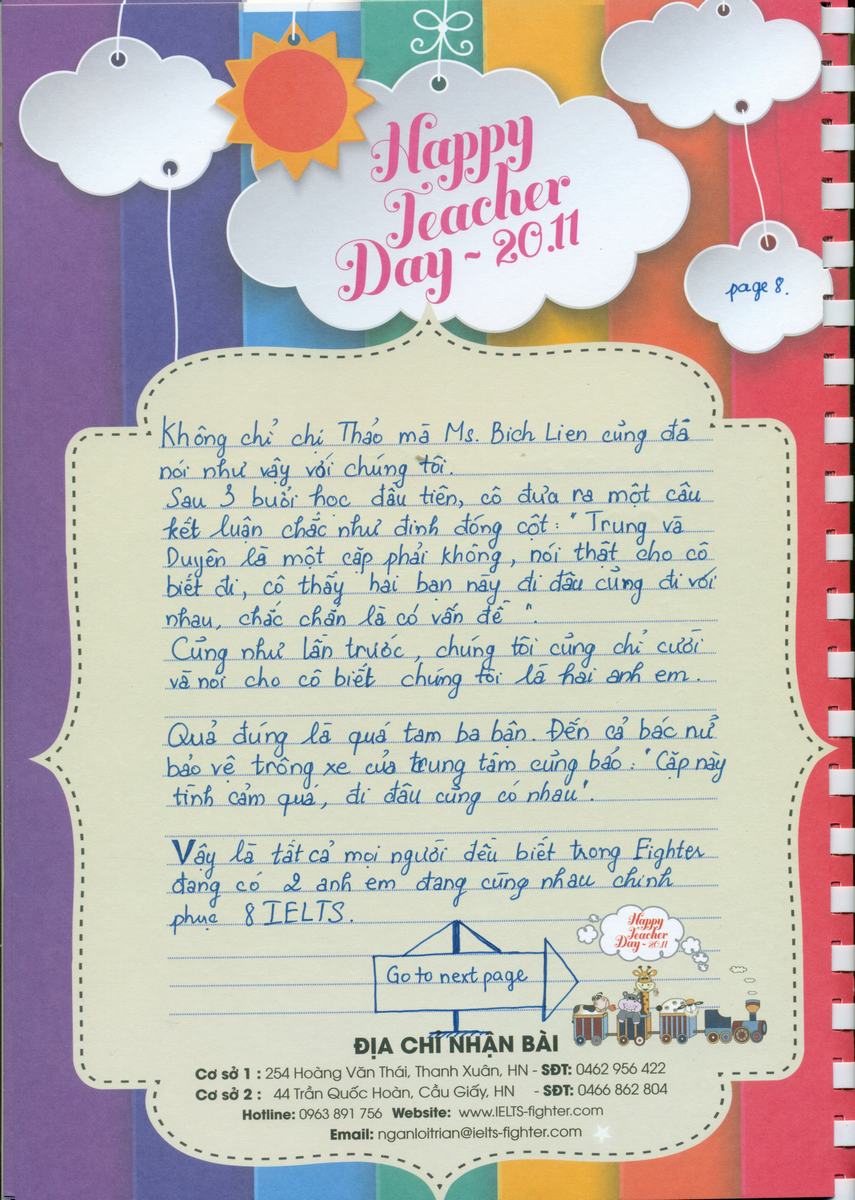 Happy
Teacher
Day ~ 20.11
page 8.
Không chỉ chị Thảo mà Ms. Bich Lien cũng đã
nói như vậy với chúng tôi.
Sau 3 buổi học đầu tiên, cô đưa ra một câu
kết luận chắc như đinh đóng cột: "Trung và
Duyên là một cặp phải không, nói thật cho cô
biết đi, cô thấy hai bạn này đi đâu cũng đi với
nhau, chắc chắn là có vấn đề".
Cũng như lần trước, chúng tôi cũng chỉ cười
và nói cho cô biết chúng tôi là hai anh em.
Quả đúng là quá tam ba bận. Đến cả bác nữ
bảo vệ trông xe của trung tâm cũng bảo: "Cặp này
tình cảm quá, đi đâu cũng có nhau".
Vậy là tất cả mọi người đều biết trong Fighter
đang có 2 anh em đang cùng nhau chinh
phục 8 IELTS.
Go to next page
Happy
Teacher
Day ~ 20.11
ĐỊA CHỈ NHẬN BÀI
Cơ sở 1 : 254 Hoàng Văn Thái, Thanh Xuân, HN - SĐT: 0462 956 422
Cơ sở 2 : 44 Trần Quốc Hoàn, Cầu Giấy, HN - SĐT: 0466 862 804
Hotline: 0963 891 756 Website: www.IELTS-fighter.com
Email: nganloitrian@ielts-fighter.com